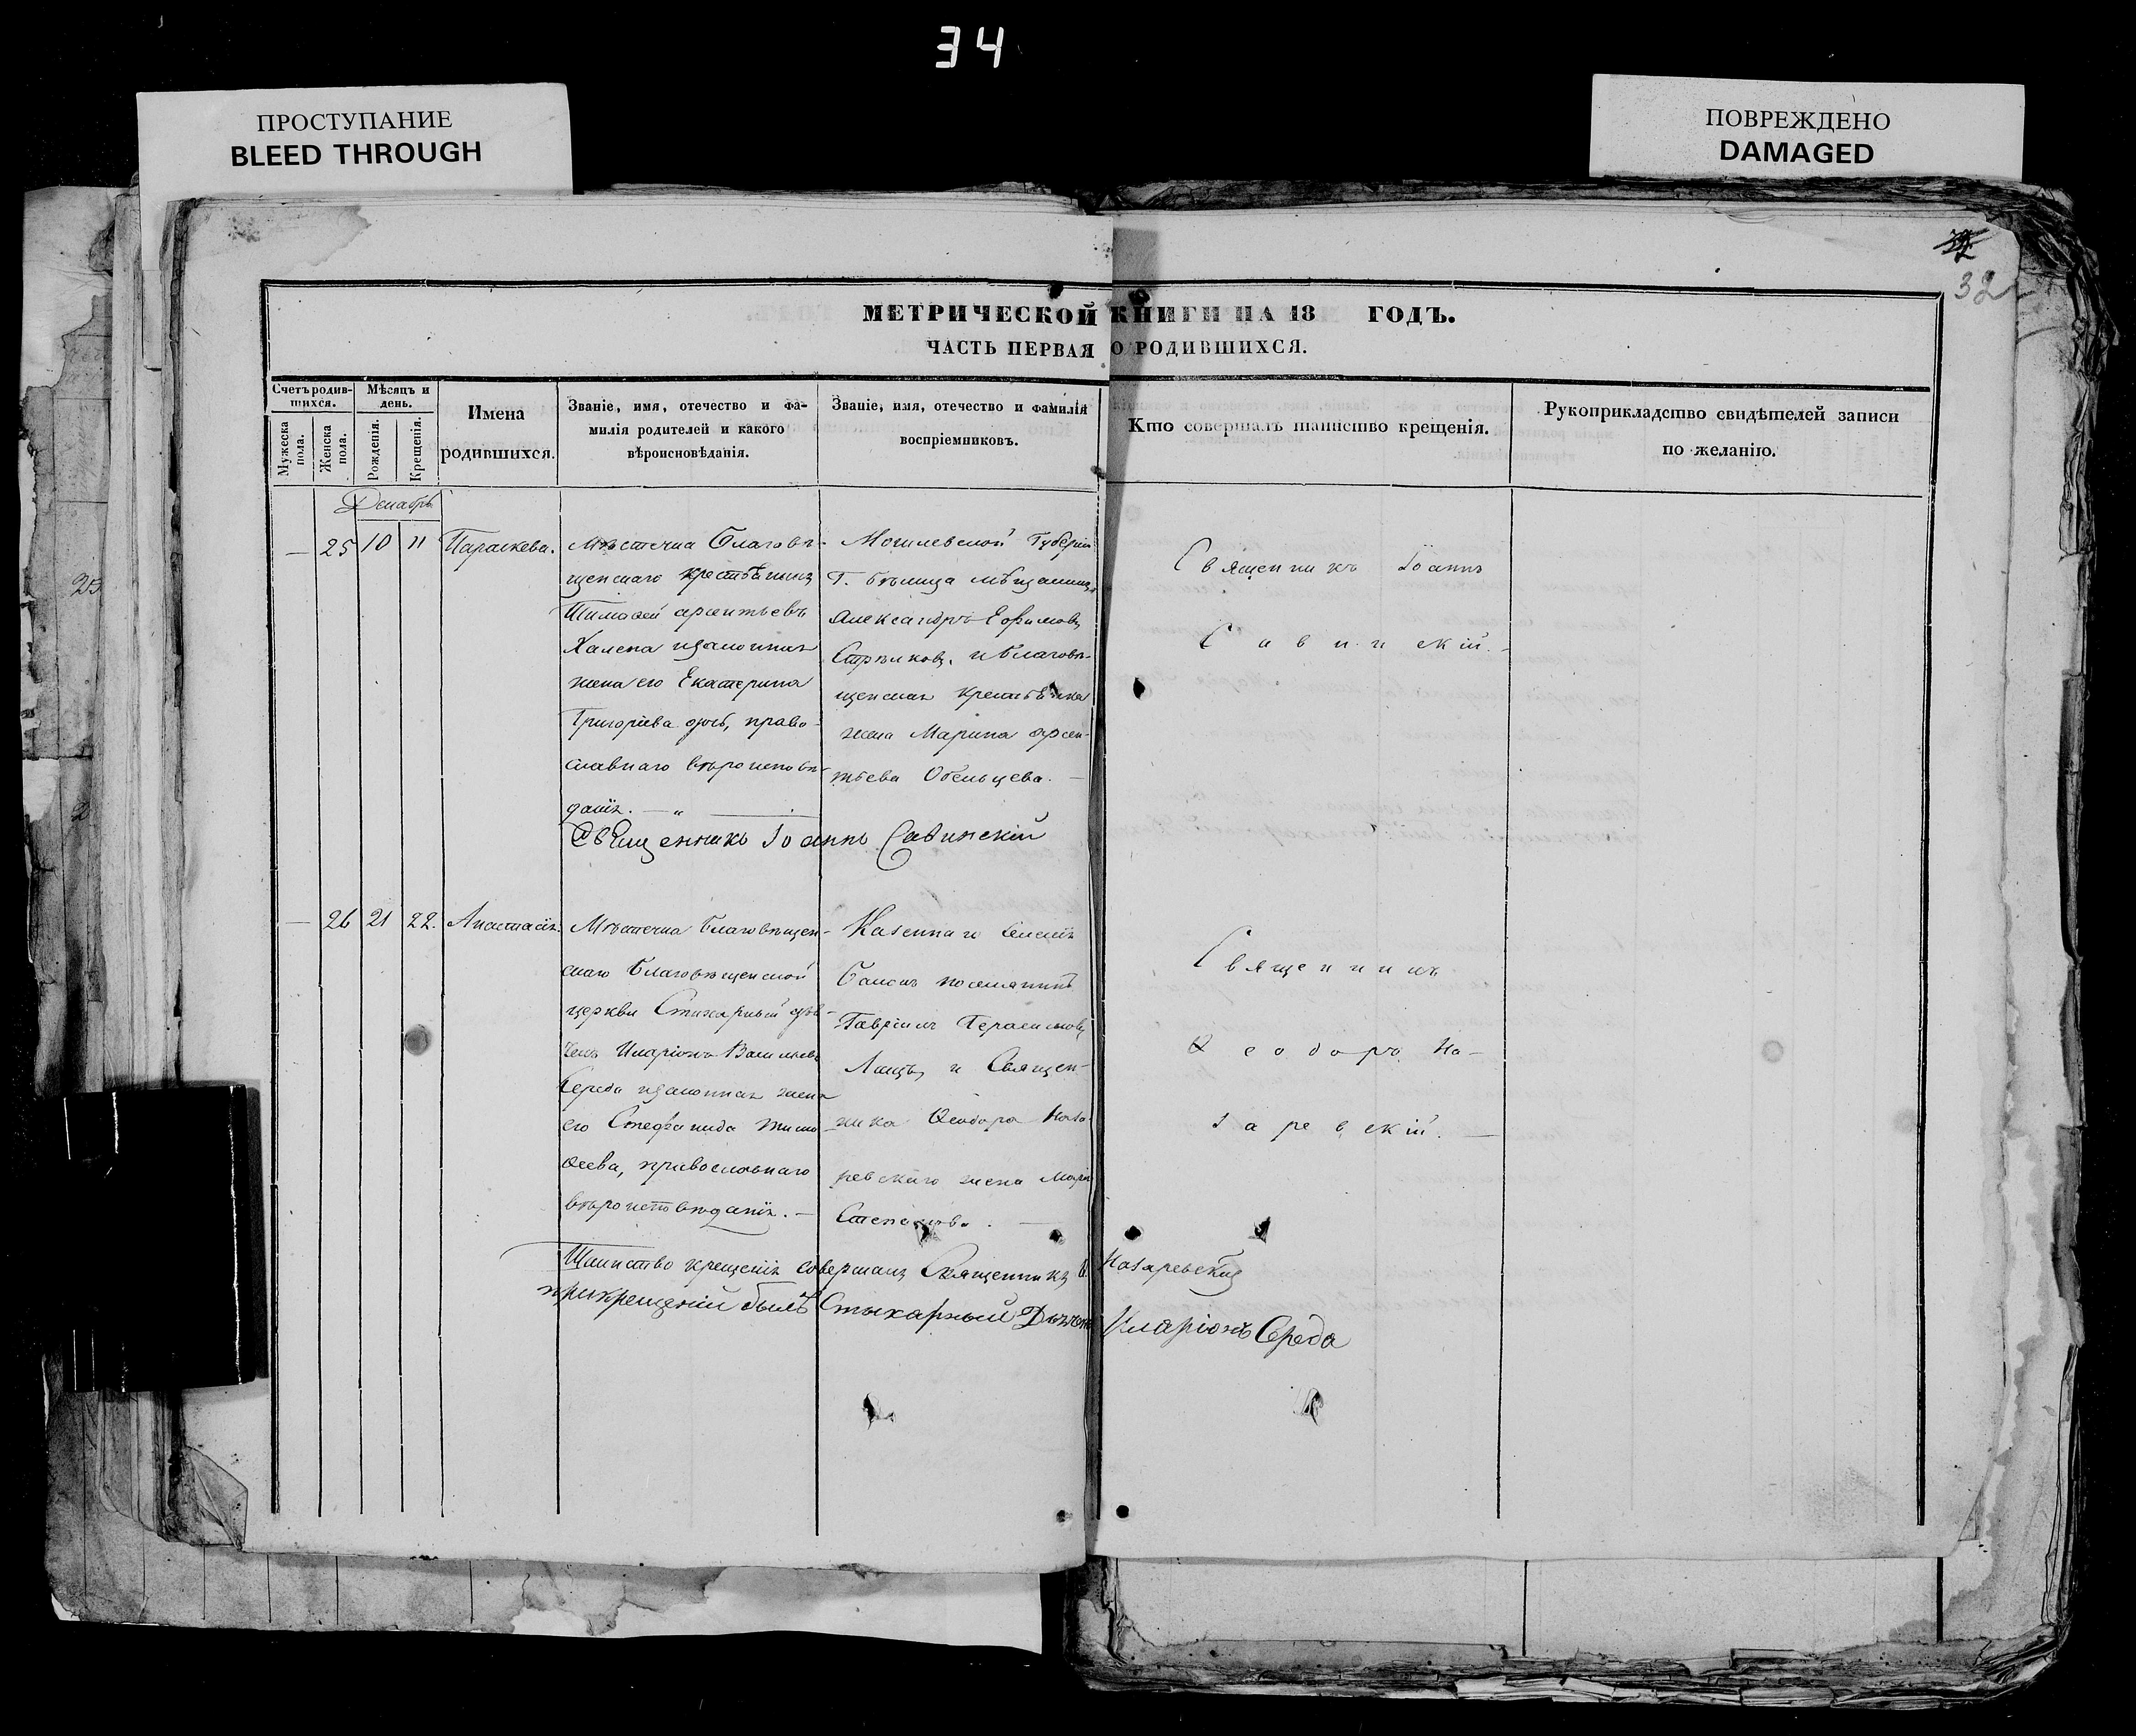 34
ПРОСТУПАНИЕ
BLEED THROUGH
ПОВРЕЖДЕНО
DAMAGED
32
МЕТРИЧЕСКОЙ КНИГИ НА 18 ГОДЪ.
ЧАСТЬ ПЕРВАЯ О РОДИВШИХСЯ.
Счетъ родив-
шихся.
Мужеска
пола.
Женска
пола.
Мѣсяцъ и
день.
Рожденія.
Крещенія.
Имена
родившихся.
Званіе, имя, отечество и фа-
милія родителей и какого
вѣроисновѣданія.
Званіе, имя, отечество и фамилія
воспріемниковъ.
Кто совершалъ таинство крещенія.
Рукоприкладство свидѣтелей записи
по желанію.
Декабрь
— 25 10 11 Параскева.
Мѣстечка Благовѣ-
щенскаго крестьянинъ
Тимофей Арсентьевъ
Халепа изаконная
жена его Екатерина
Григорiева дочь, право-
славнаго вѣроисповѣ-
данія. — „ —
Могилевской Губерніи
Г. Бѣлица мѣщанинъ
Александръ Ефимовъ
Стрѣлковъ, и Благовѣ-
щенская крестьянка
жена Марина Арсен-
тьева Обельцева. —
Священникъ Іоаннъ
Савинскій. —
Священникъ Іоаннъ Савинскій
— 26 21 22. Анастасія.
Мѣстечка Благовѣщен-
скаго Благовѣщенской
церкви Стихарный дья-
чекъ Иларіонъ Васильевъ
Середа изаконная жена
его Стефанида Тимо-
ѳеева, православнаго
вѣроисповѣданія. —
Казеннаго селенія
поселянинъ
Гавріилъ Герасимовъ
и Священ-
ника Ѳеодора Наза-
ревскаго жена Марія
Степанова. —
Священникъ
Ѳеодоръ На-
заревскій. —
Таинство крещенія совершалъ Священникъ Ѳ. Назаревскій
прикрещеніи былъ Стыхарный Дьячекъ Иларіонъ Середа